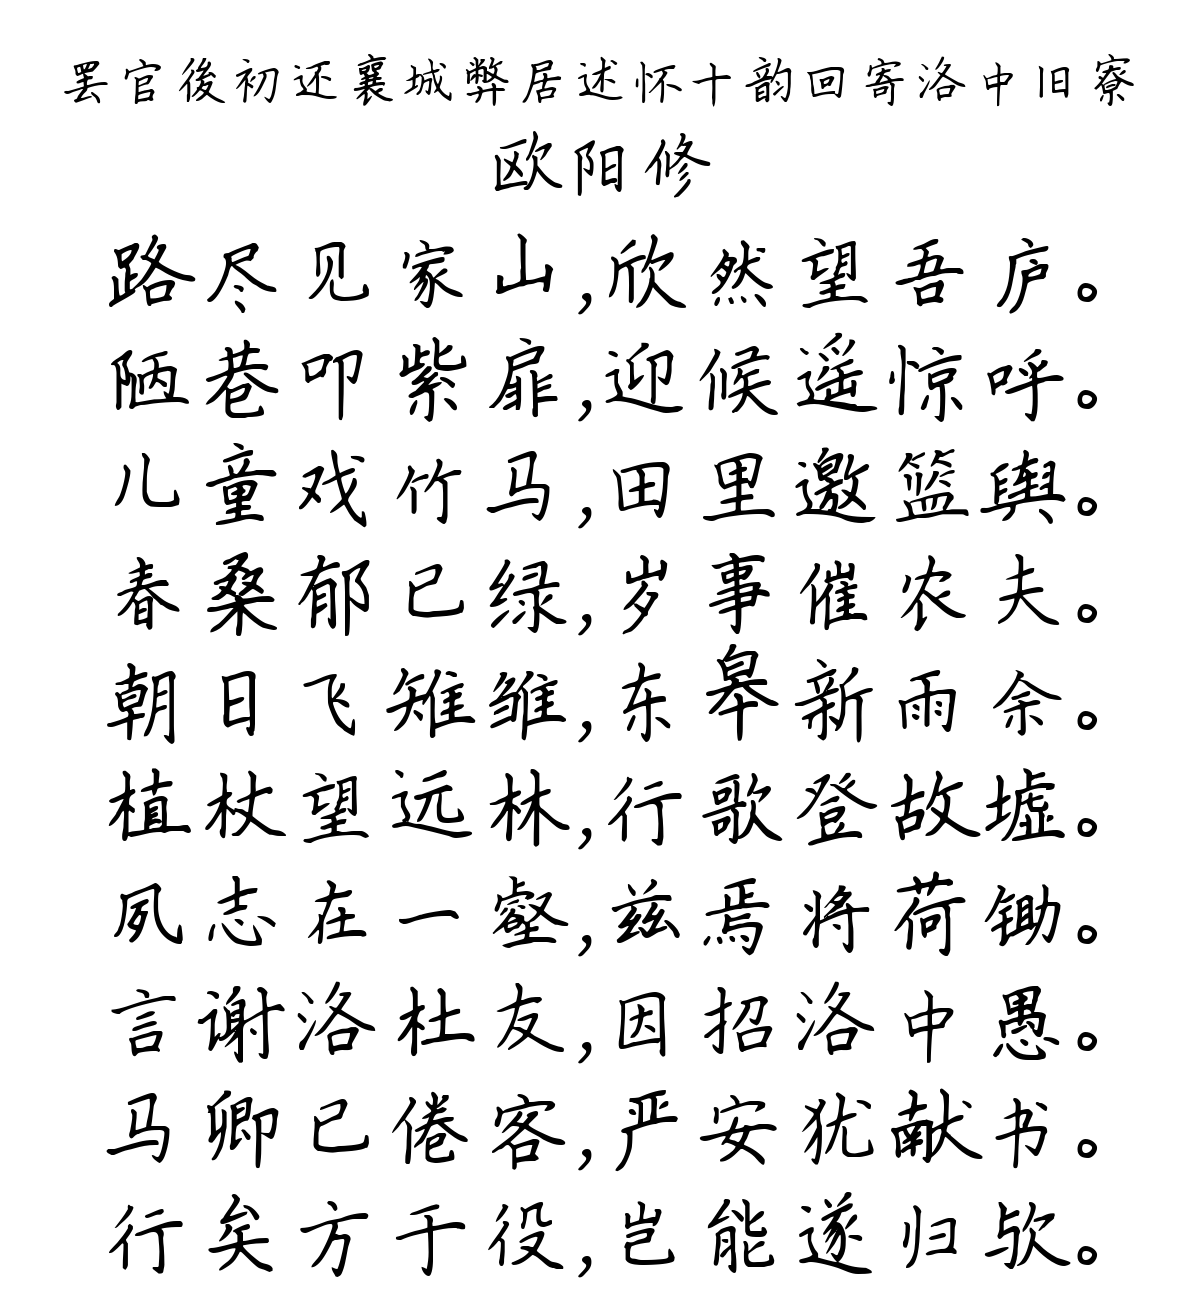 罢官後初还襄城弊居述怀十韵回寄洛中旧寮
欧阳修
路尽见家山,欣然望吾庐。
陋巷叩紫扉,迎候遥惊呼。
儿童戏竹马,田里邀篮舆。
春桑郁已绿,岁事催农夫。
朝日飞雉雏,东皋新雨余。
植杖望远林,行歌登故墟。
夙志在一壑,兹焉将荷锄。
言谢洛杜友,因招洛中愚。
马卿已倦客,严安犹献书。
行矣方于役,岂能遂归欤。